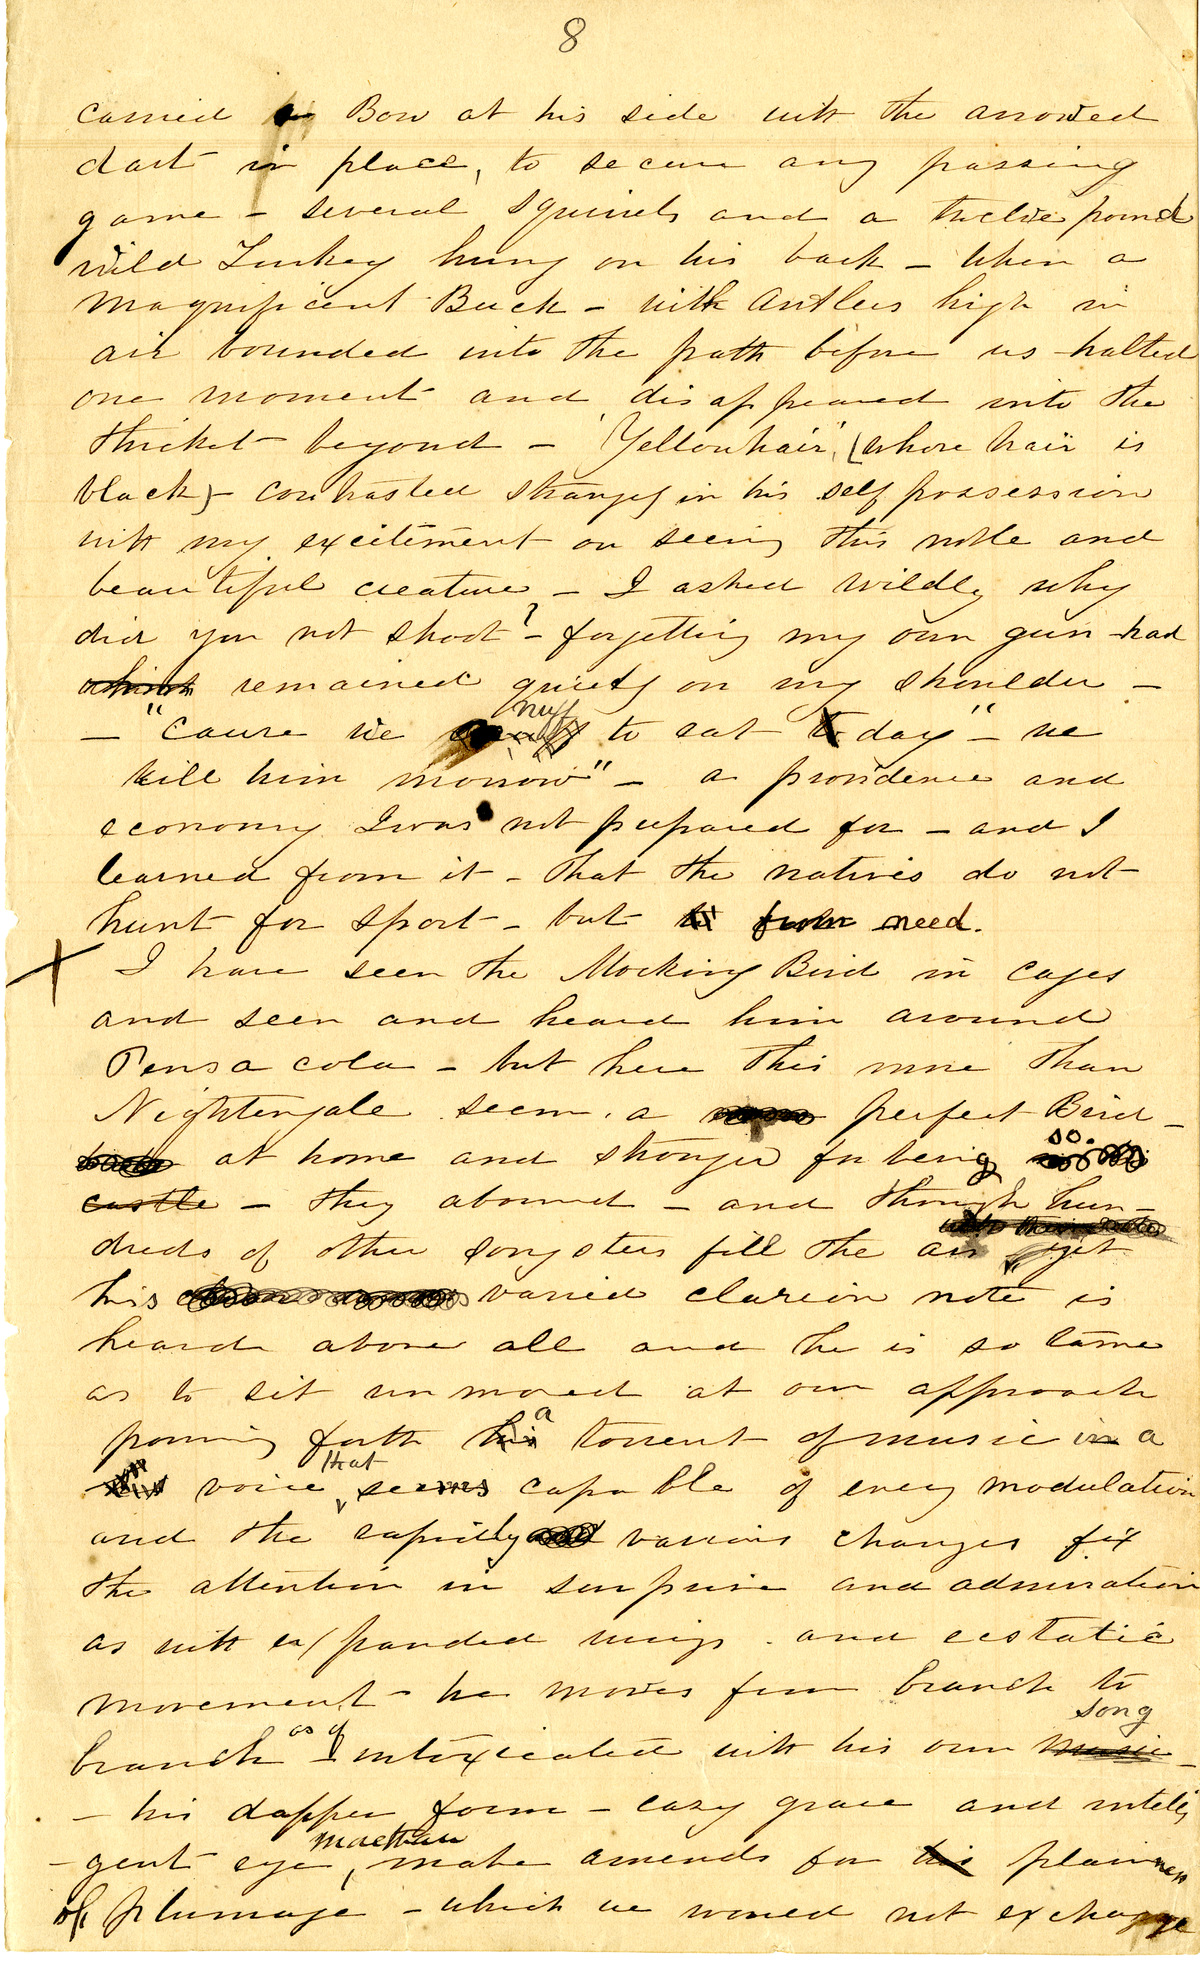 8
carried a Bow at his side with the arrowed
dart in place, to secure any passing
game - several squirrels and a twelve pound
wild Turkey hung on his back - when a
magnificent Buck - with Antlers high in
air bounded into the path before us halted
one moment and disappeared into the
thicket beyond - "Yellowhair", (whose hair is
black) - contrasted strangely in his self possession
with my excitement on seeing this noble and
beautiful creature - I asked wildly why
did you not shoot? - forgetting my own gun had
which remained quietly on my shoulder -
- "cause we nuff to eat to day" - we
kill him morrow" - a providence and
economy I was not prepared for - and I
learned from it - that the natives do not
hunt for sport - but from need.
X I have seen the Mocking Bird in cages
and seen and heard him around
Pensacola - but here this more than
Nightengale seems a perfect Bird -
at home and stronger for being so.
castle - they abound - and though hun-
dreds of other songsters fill the air yet
his varied clarion note is
heard above all and he is so tame
as to sit unmoved at our approach
pouring forth his a torrent of music in a
voice that seems capable of every modulation
and the rapidly various changes fix
the attention in surprise and admiration
as with expanded wings. and ecstatic
movement - he moves from branch to
branch as if intoxicated with his own music song -
- his dapper form - easy grace and inteli
- gent eye, more than make amends for his plainness
of plumage - which we would not exchange